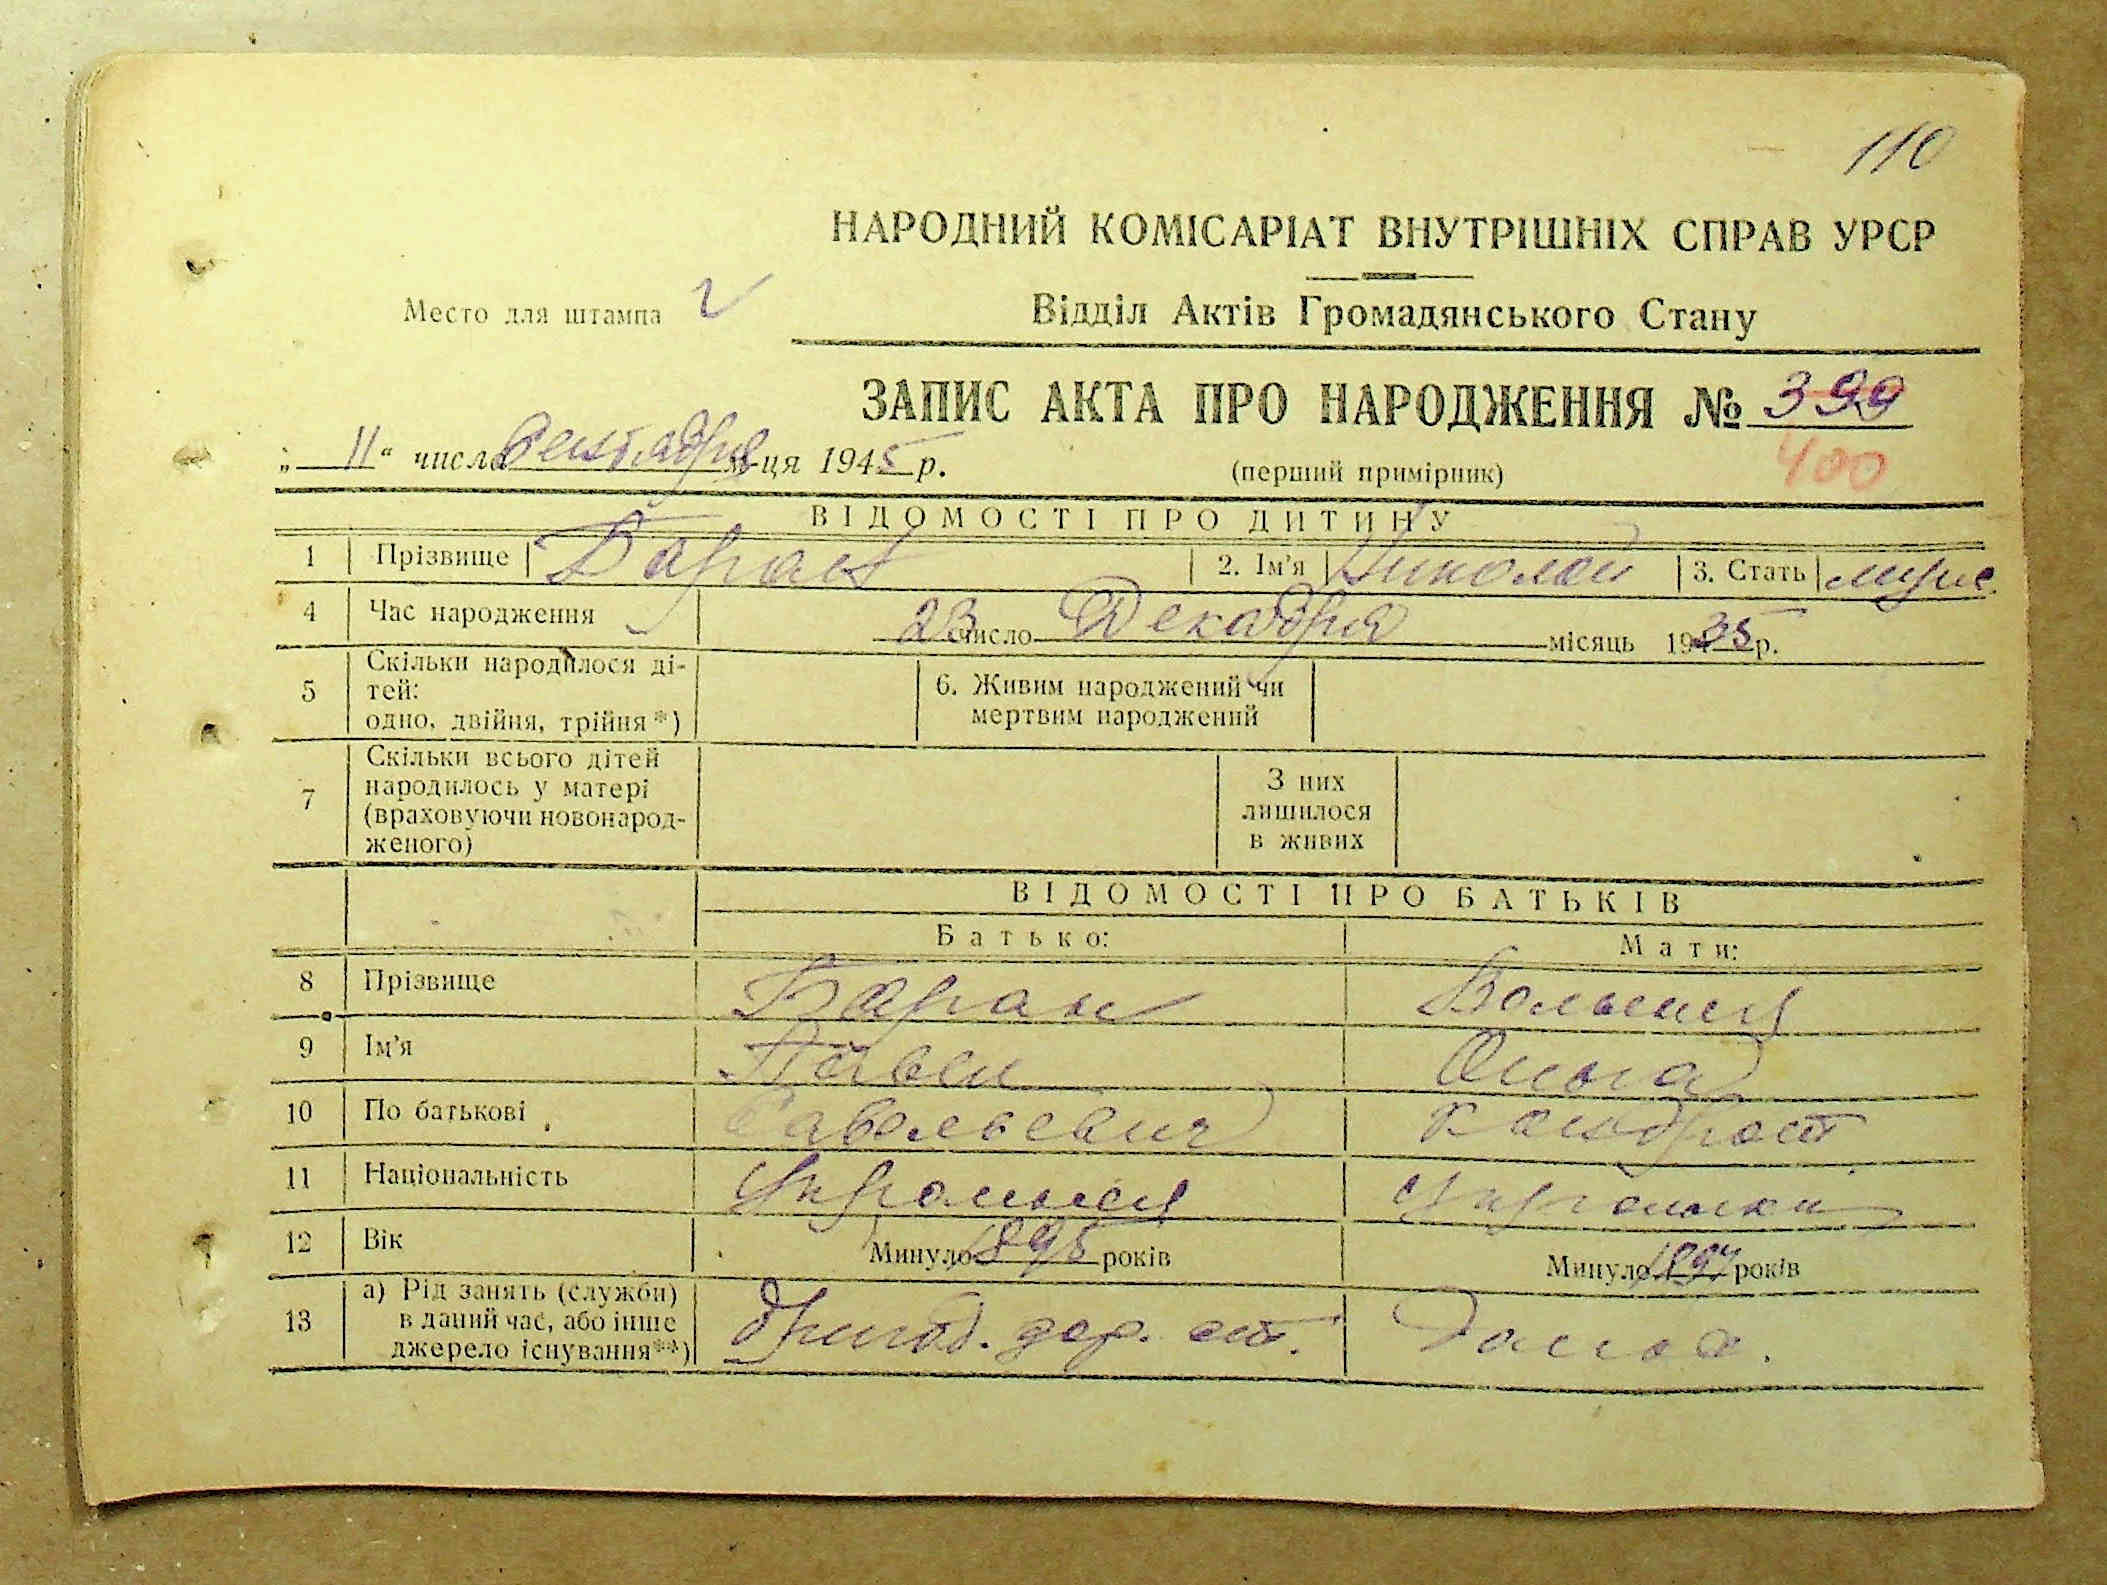 110
НАРОДНИЙ КОМІСАРІАТ ВНУТРІШНІХ СПРАВ УРСР
Место для штампа
Відділ Актів Громадянського Стану
ЗАПИС АКТА ПРО НАРОДЖЕННЯ № 399
400
„ 11 “ числа Сентября м-ця 1945 р.
(перший примірник)
ВІДОМОСТІ ПРО ДИТИНУ
1 Прізвище Баран 2. Ім'я Николай 3. Стать муж.
4 Час народження 23 число Декабря місяць 1935 р.
5 Скільки народилося ді-
тей:
одно, двійня, трійня*)
6. Живим народжений чи
мертвим народжений
7 Скільки всього дітей
народилось у матері
(враховуючи новонарод-
женого)
З них
лишилося
в живих
ВІДОМОСТІ ПРО БАТЬКІВ
Батько: Мати:
8 Прізвище Баран
9 Ім'я Павел Ольга
10 По батькові Савельевич Кондрат.
11 Національність Украинец Украинка
12 Вік Минуло 1895 років Минуло 1897 років
13 а) Рід занять (служби)
в даний час, або інше
джерело існування**)
дор. Домох.